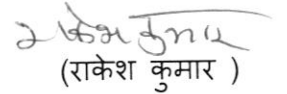 राकेश कुमार
(राकेश कुमार )